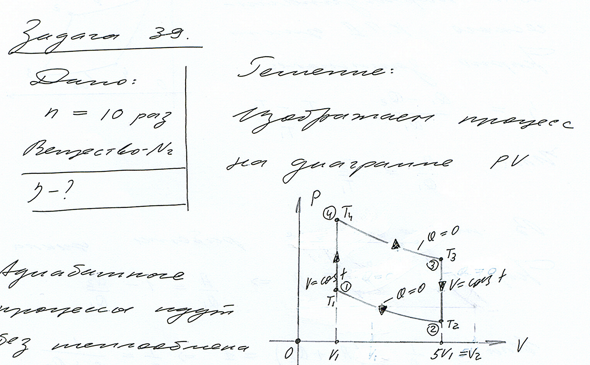 Задача 39.
Дано:
n = 10 раз
Вещество-N2
η-?
Решение:
Изображаем процесс
на диаграмме PV
P
④ T4
Q=0
③ T3
V=const
V=const
① T1
Q=0
② T2
0 V1 5V1=V2 V
Адиабатные
процессы идут
без теплообмена